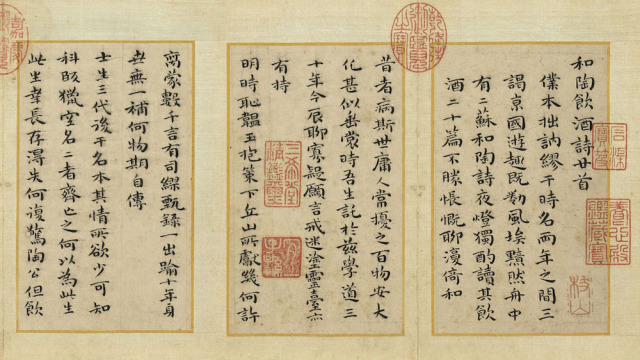 和陶飲酒詩廿首
僕本拙訥繆干時名兩年之間三
謁京國遊趣既勌風埃黯然舟中
有二蘇和陶詩夜燈獨酌讀其飲
酒二十篇不勝悵慨聊復倚和
枝山
昔者病斯世庸人常擾之百物安大
化甚似垂裳時吾生託於茲學道三
十年今辰聊寡疑願言戒迷塗靈臺亦
有持
明時恥韞玉抱策下丘山所獻幾何許
三希堂精鑑璽
宜子孫
數千言有司繆甄錄一出踰十年身
世無一補何物期自傳
士生三代後干名本其情所欲少可知
科販獵室名二者齊亡之何以為此生
此生幸長存得失何復驚陶公但飲